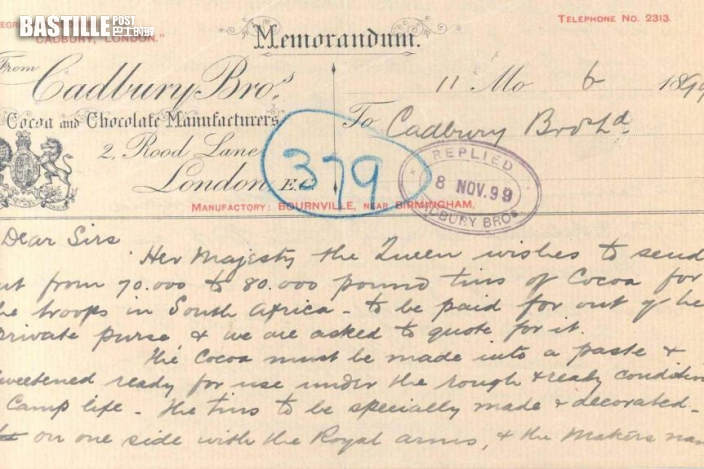 BASTILLE POST
巴士的報
TELEPHONE NO. 2313.
CADBURY, LONDON."
Memorandum.
From
Cadbury Bros.
11 Mo 6 1899
Cocoa and Chocolate Manufacturers
To Cadbury Bros Ld
2, Rood Lane
London, E.C.
379
REPLIED
8 NOV. 99
DBURY BROS
MANUFACTORY: BOURNVILLE, NEAR BIRMINGHAM,
Dear Sirs
Her Majesty the Queen wishes to send
ut from 70.000 to 80.000 pound tins of Cocoa for
he troops in South Africa - to be paid for out of he
private purse & we are asked to quote for it.
The Cocoa must be made into a paste &
sweetened ready for use under the rough & ready condition
Camp life - the tins to be specially made & decorated -
on one side with the Royal arms, & the Makers nam